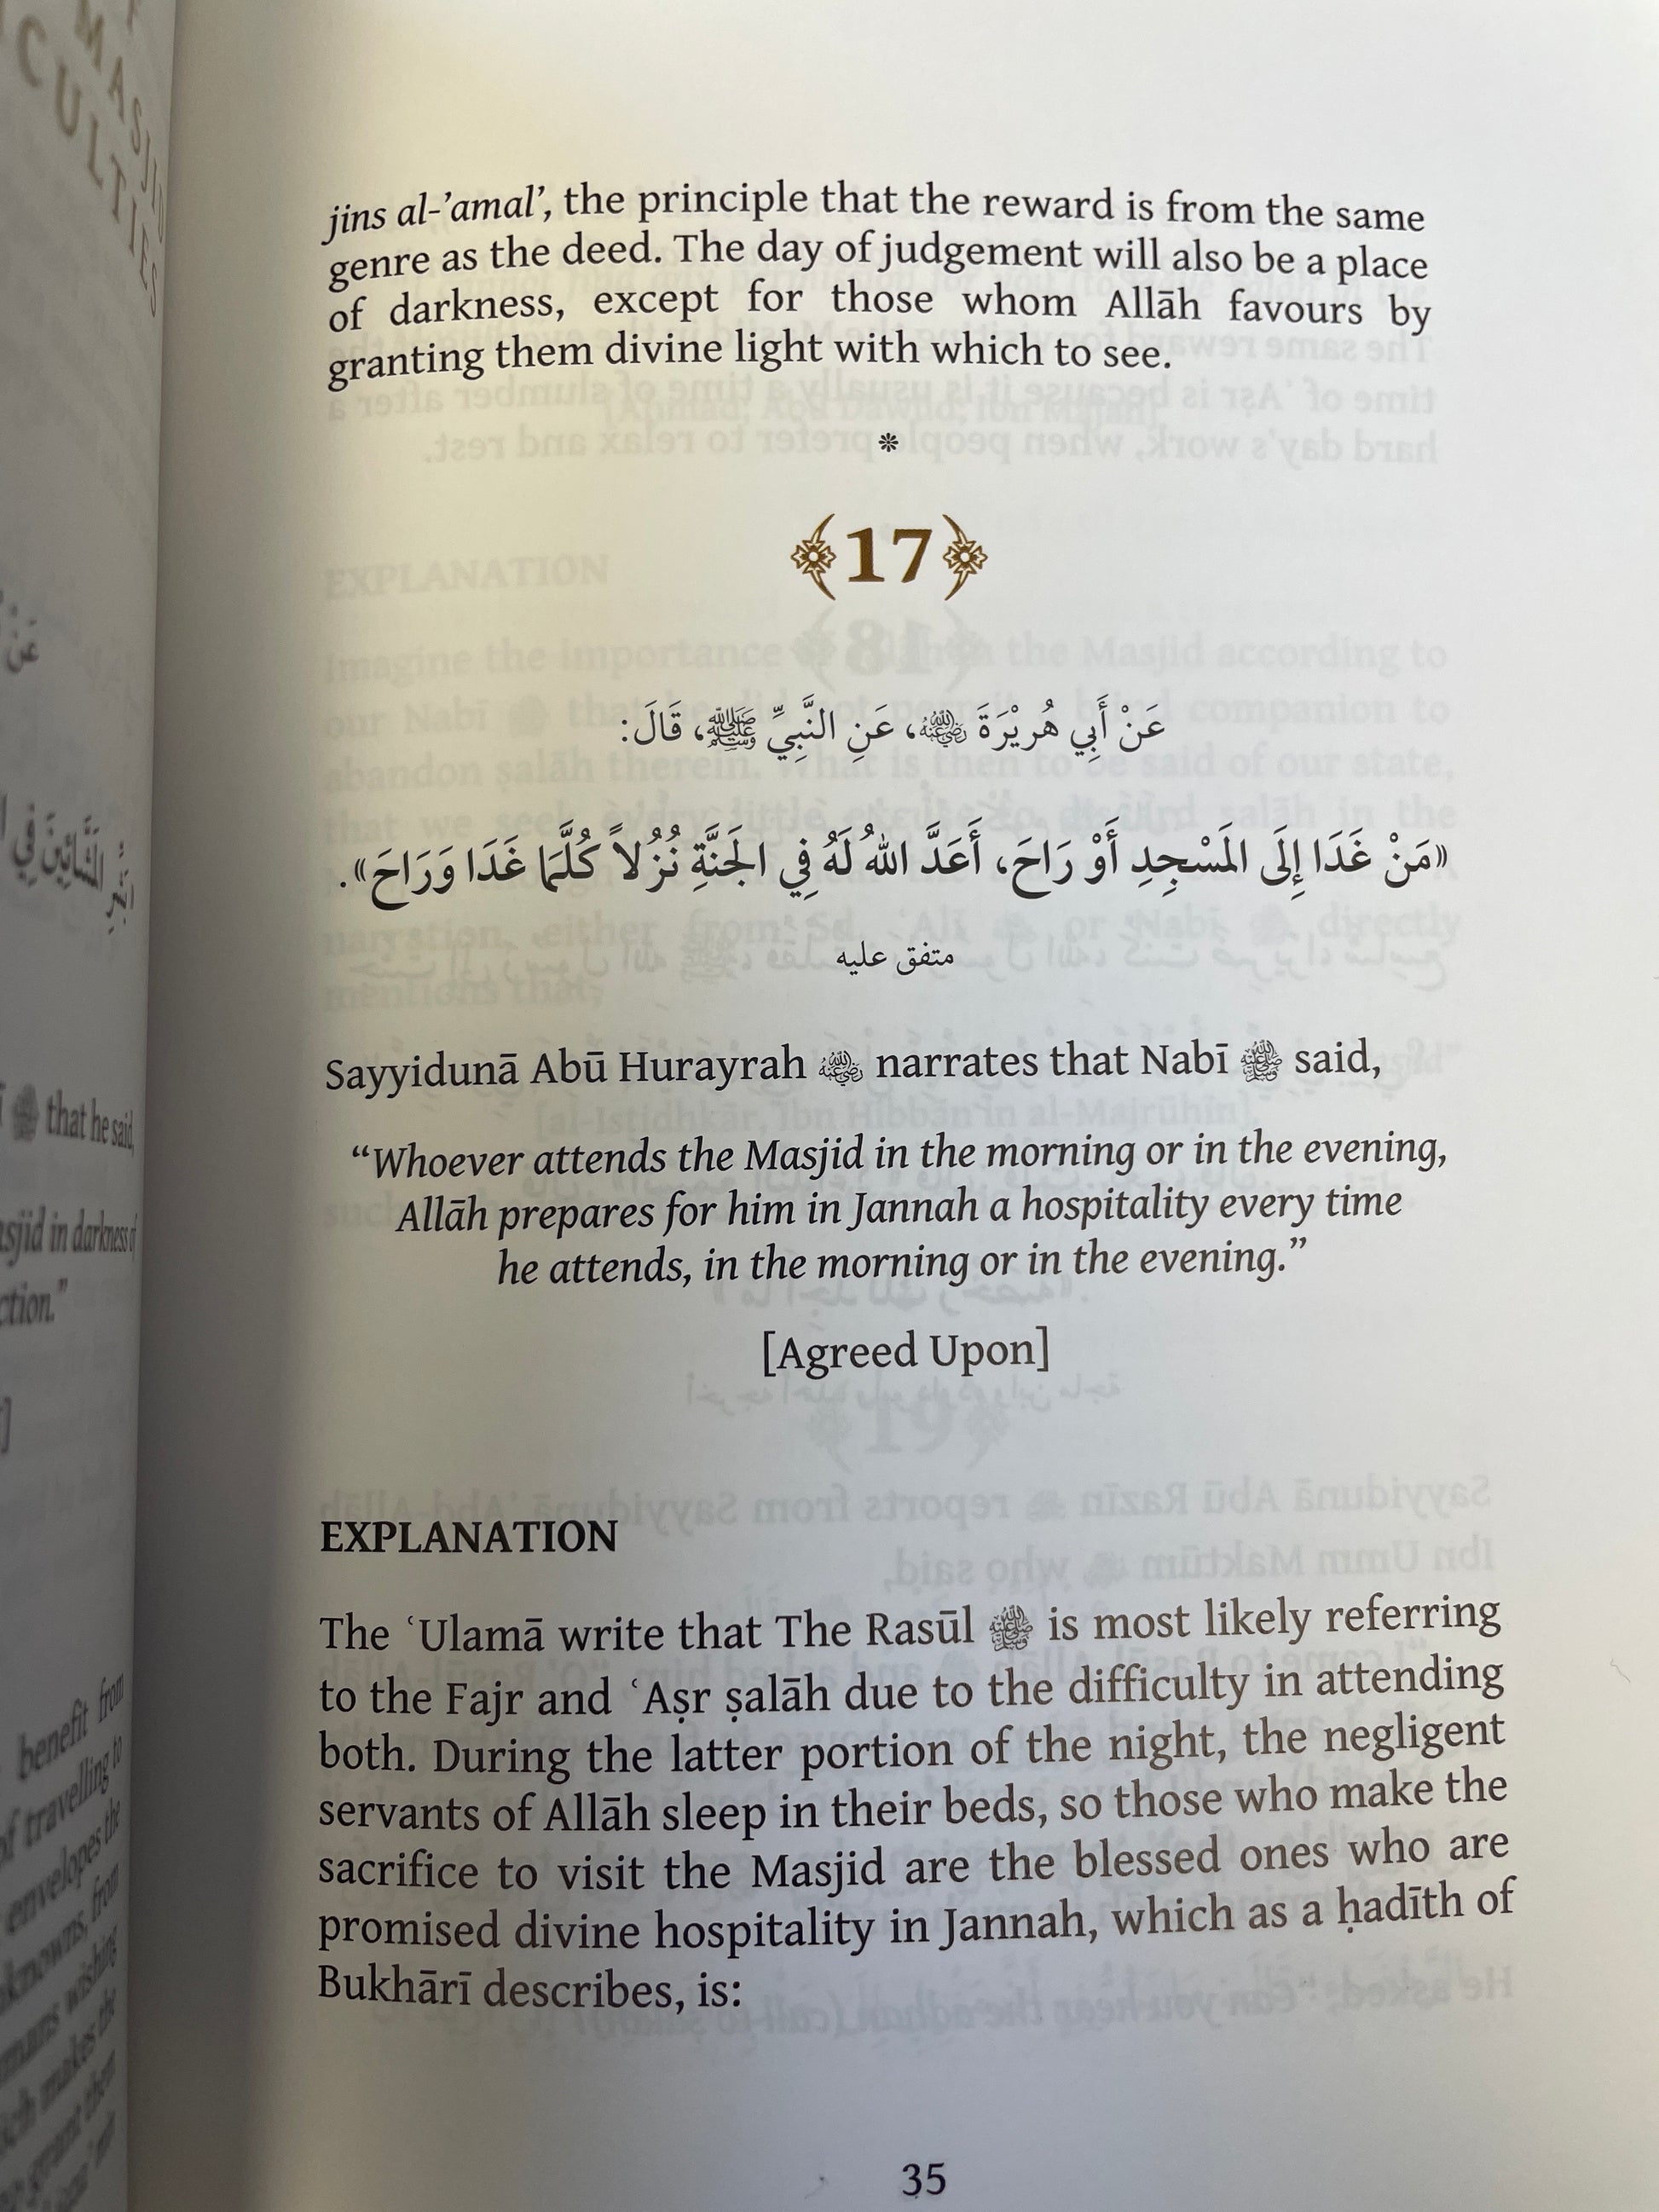 MASJID
CULTIES
عَنْ
that he said,
asjid in darkness of
ction."
]
benefit from
of travelling to
envelopes the
knowns, from
mans wishing
makes the
grant them
jins al-'amal', the principle that the reward is from the same
genre as the deed. The day of judgement will also be a place
of darkness, except for those whom Allāh favours by
granting them divine light with which to see.
*
17
عَنْ أَبِي هُرَيْرَةَ ﵁، عَنِ النَّبِيِّ ﷺ، قَالَ:
«مَنْ غَدَا إِلَى المَسْجِدِ أَوْ رَاحَ، أَعَدَّ اللهُ لَهُ فِي الجَنَّةِ نُزُلاً كُلَّمَا غَدَا وَرَاحَ».
متفق عليه
Sayyidunā Abū Hurayrah ﵁ narrates that Nabī ﷺ said,
“Whoever attends the Masjid in the morning or in the evening,
Allāh prepares for him in Jannah a hospitality every time
he attends, in the morning or in the evening.”
[Agreed Upon]
EXPLANATION
The ʿUlamā write that The Rasūl ﷺ is most likely referring
to the Fajr and ʿAṣr ṣalāh due to the difficulty in attending
both. During the latter portion of the night, the negligent
servants of Allāh sleep in their beds, so those who make the
sacrifice to visit the Masjid are the blessed ones who are
promised divine hospitality in Jannah, which as a ḥadīth of
Bukhārī describes, is:
35